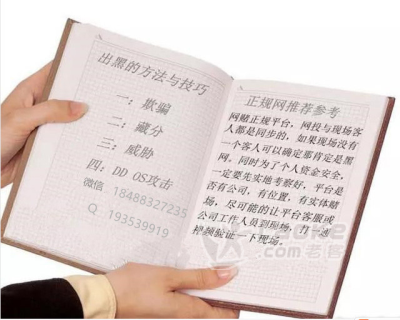 出黑的方法与技巧
一：欺骗
二：藏分
三：威胁
四：DD OS攻击
微信 18488327235
Q 193539919
正规网推荐参考
网赌正规平台，网投与现场客
人都是同步的，如果现场没有
一个客人可以确定那肯定是黑
网。同时为了个人资金安全，
一定要先实地考察好，平台是
否有公司，有位置，有实体赌
场，尽可能的让平台客服或
公司工作人员到现场，
视频验证一下现场。